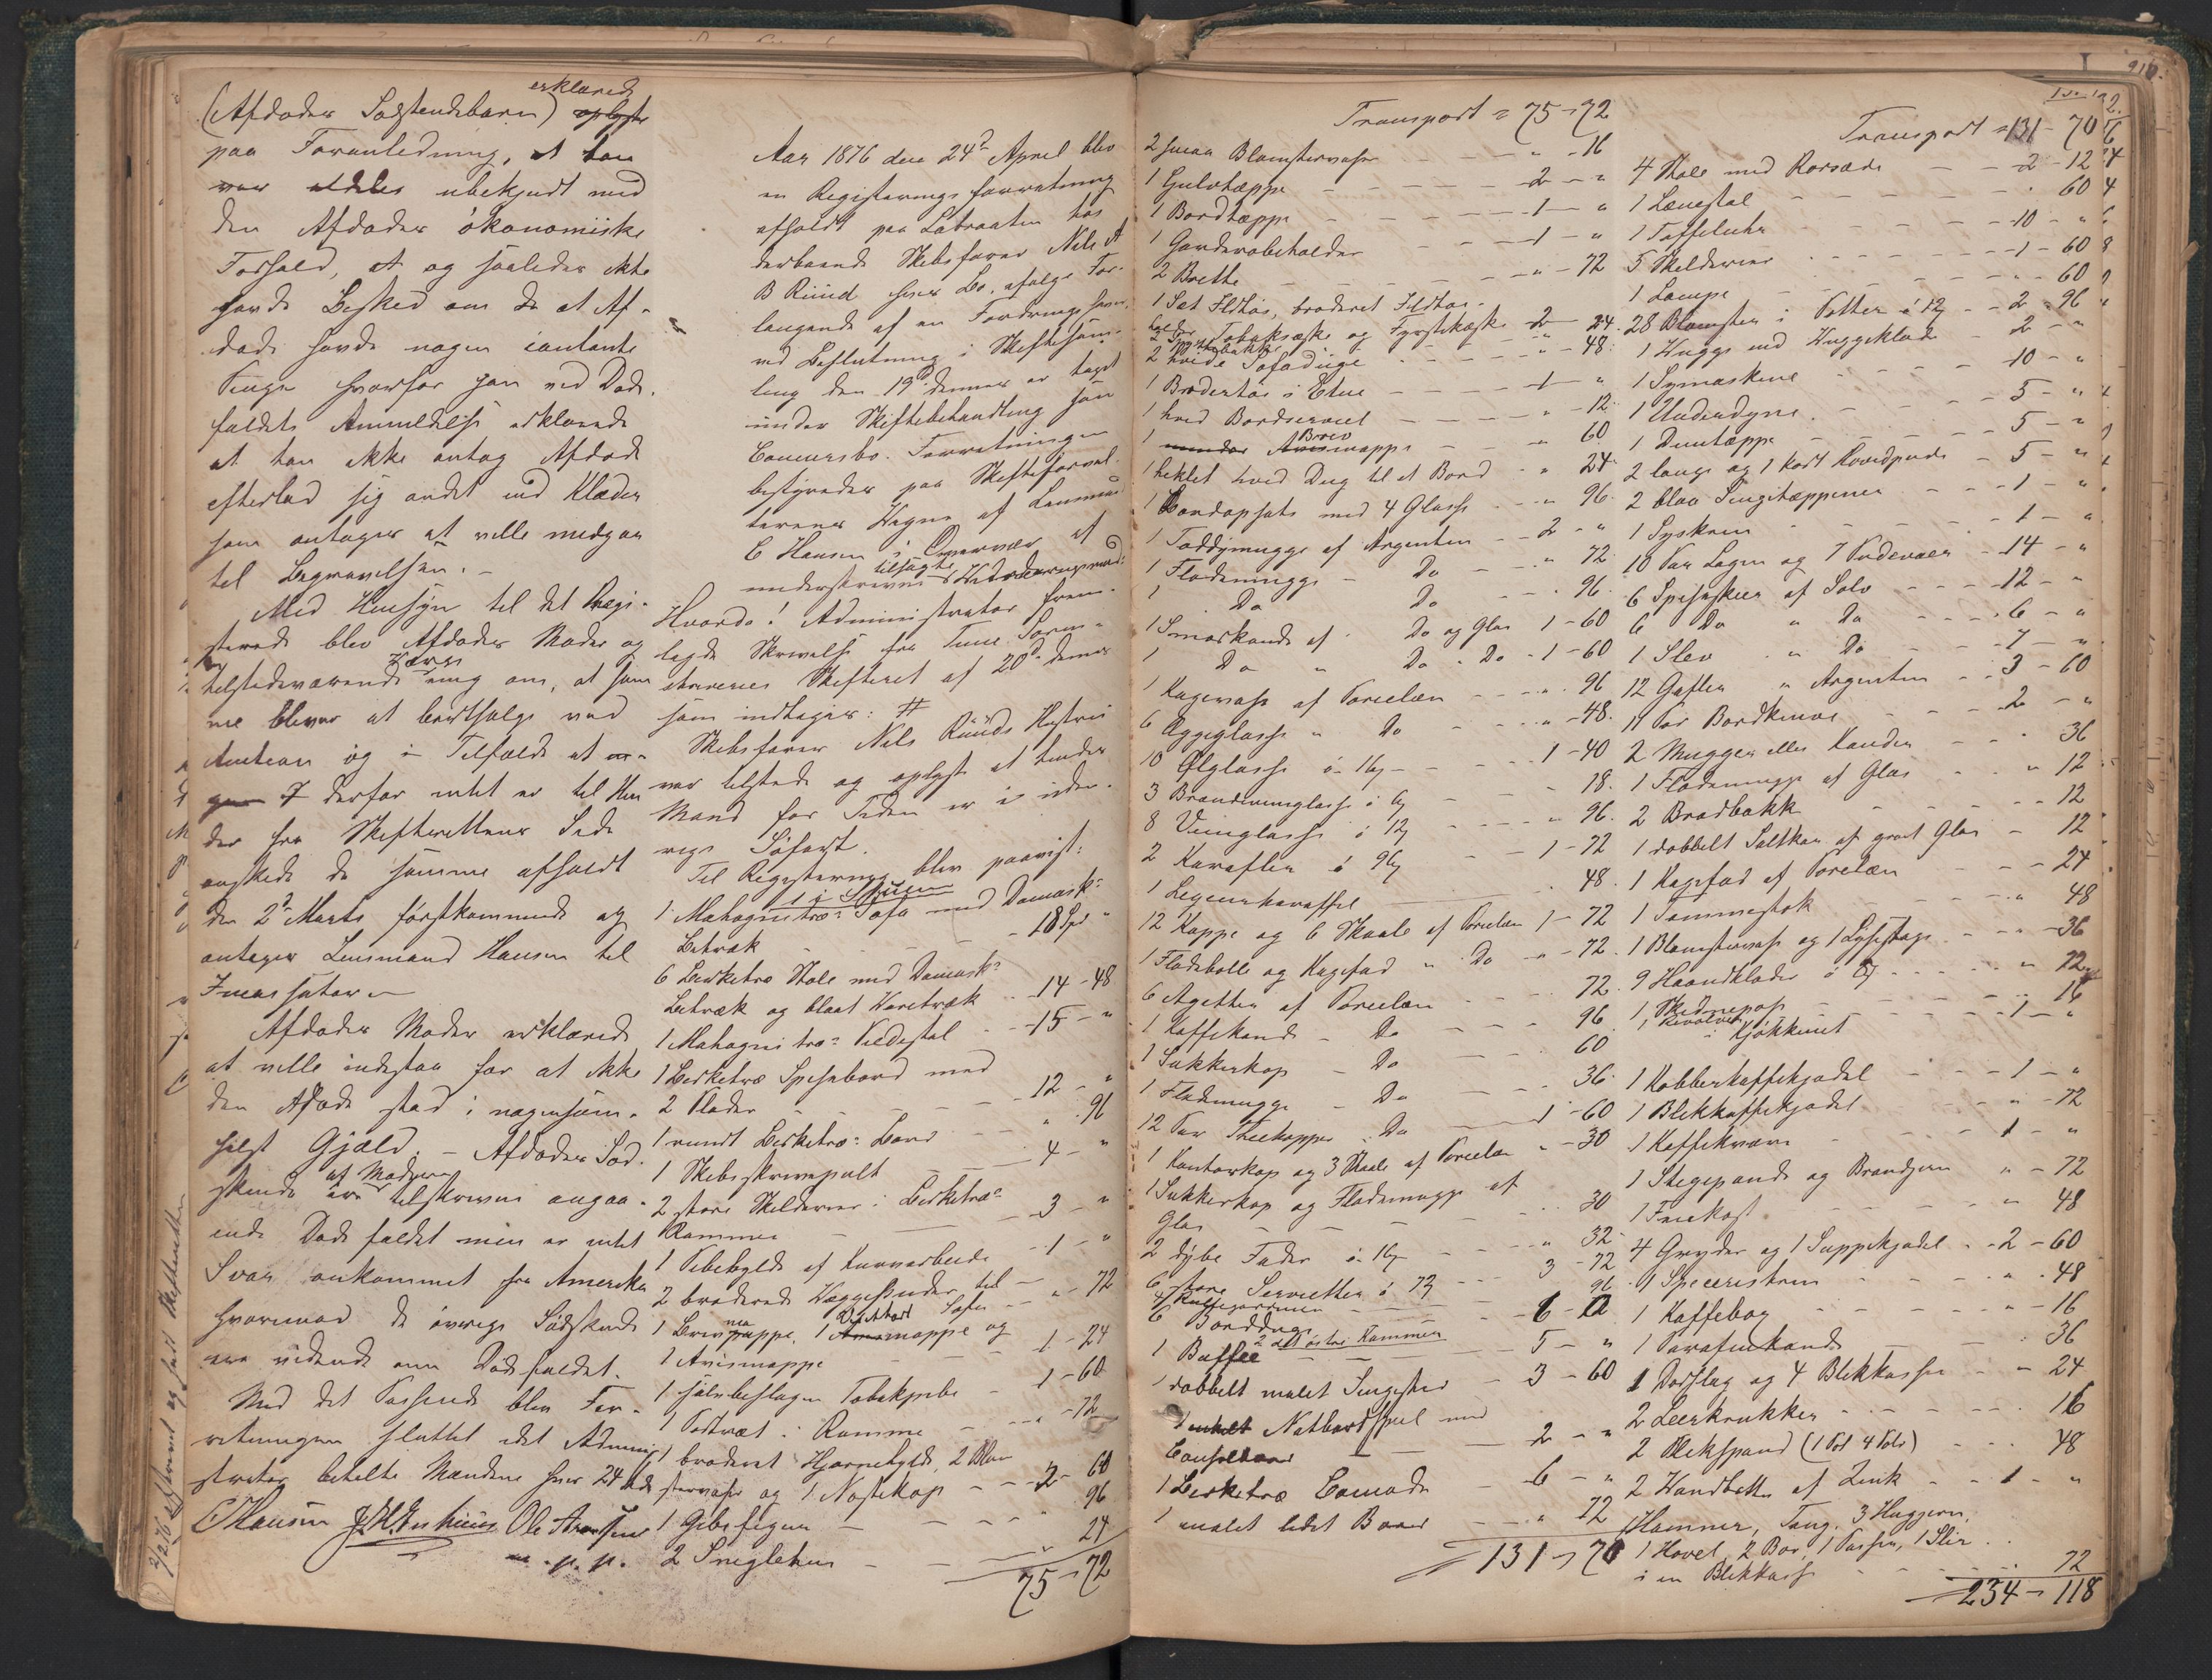 (Afdødes Sødskendebarn) erklærede
paa Foranledning, at han
var aldeles ubekjendt med
den Afdødes økonomiske
Forhold, at og saaledes ikke
havde Besked om de at Af-
døde havde nogen contante
Penge hvorfor han ved Døds-
faldets Anmeldelse erklærede
at han ikke antog Afdøde
efterlod sig andet end Klæder
som antages at ville medgaa
til Begravelsen. -
Med Hensyn til det Regi-
strerede blev Afdødes Moder og
tilstedeværende Værge enig om, at sam
me bliver at bortsælge ved
Auction og i Tilfælde at
derfor intet er til Hin
der fra Skifterettens Side
ønskede de samme afholdt
den 2den Marts førstkommende og
antages Lensmand Hansen til
Incassator -
Afdødes Moder erklærede
at ville indestaa for at ikke
den Afdøde stod i nogensom-
helst Gjæld. - Afdødes Sød-
skende ere af Moderen tilskrevne angaa-
ende Dødsfaldet men er intet
Svar ankommet fra Amerika
hvorimod de øvrige Sødskende
ere vidende om Dødsfaldet.
Med det Passerede blev For-
retningen sluttet idet Admini
strator betalte Mændene hver 24
C Hansen Ole Arntsen
m. p. p.
2/2 76
Aar 1876 den 24de April blev
en Registreringsforretning
afholdt paa Labraaten hos
Skibsfører Nils A
B Ruud hvis Bo, ifølge For-
langende af en Fordringshaver
ved Beslutning i Skiftesam-
ling den 19de dennes er taget
under Skiftebehandling som
Concursbo. Forretningen
bestyredes paa Skifteforval-
terens Vegne af Lensmand
C Hansen i Overvær af
underskrevne tilsagte
Hvorda! Administrator frem-
lagde Skrivelse fra Tune Soren-
skriveries Skifteret af 20de dennes
som indtages: #
Skibsfører Nils Ruuds Hustru
var tilstede og oplyste at hendes
Mand for Tiden er i uden-
rigs Søfart.
Til Registrering blev paavist:
1 i Stuen
1 Mahognitræs Sofa med Damask-
Betræk - 18 Spd "
6 Birketræ Stole med Damask-
Betræk og blaat Varetræk - 14 - 48
1 Mahogni træs Veldestol - 15 - "
1 Birketræ Spisebord med
2 Plader - 12 - "
1 rundt Birketræs Bord - " 96
1 Skibsskrivepult - 4 - "
2 store Skilderier i Birketræs
Rammer - 3 - "
1 Pibehylde af Kurvarbeide - 1 - "
2 broderede Væggepuder til Sofa - " - 72
1 Brevmappe, 1 Visitkortmappe og
1 Avismappe - 1 - 24
1 sølvbeslagen Tobakspibe - 1 - 60
1 Portræt i Ramme - " - 72
1 broderet Hjørnehylde, 2 Blom
stervaser og 1 Nøstekop - 2 - 60
1 Gibsfigur - " 96
2 Sneglehuse - " 24
75 - 72
Transport = 75 - 72
2 smaa Blomstervaser - " - 16
1 Gulvtæppe - 2 - "
1 Bordtæppe - 1 - "
1 Garderobeholder - 1 - "
2 Brette - " - 72
1 Sæt Fidtøi, broderet Fidtøi-
holder Tobaksæske og Fyrstikæske - 2 - 24
2 hvide Sofaduge - " - 48
1 Brodertøi i Etui - 1 "
1 hvid Bordserviet - " - 12
1 Brevmappe - " 60
1 heklet hvid Dug til et Bord - " 24
1 Bordopsats med 4 Glasse - " 96
1 Toddymugge af Argentin - 2 - "
1 Flødemugge - Do - " 72
1 Do Do - " 96
1 Smørkande af Do og Glas 1 - 60
1 Do " Do - Do - 1 - 60
1 Kagevase af Porcelæn - " 96
6 Æggeglasse " Do - " - 48
10 Ølglasse á 16s - 1 - 40
3 Brændevinsglasse á 6s - " 18
8 Vinglasse á 12s - " 96
2 Karafler á 96s - 1 - 72
1 Liqeurkaraffel - " 48
12 Koppe og 6 Skaale af Porcelæn 1 - 72
1 Flødebolle og Kagefad " Do - " - 72
6 Asjetter af Porcelæn - 72
1 Kaffekande - Do - 96
1 Sukkerkop - Do - 60
1 Flødemugge - Do - 36
12 Par Theekopper Do - 1 - 60
1 Kantorkop og 3 Skaale af Porcelæn " - 30
1 Sukkerkop og Flødemugge af
Glas - 30
2 dybe Fader á 16s - " 32
6 store Servietter á 72s - 3 - 72
4 Rullegardiner - 96
6 Bordduge - 6 - "
2 det østre Kammer
1 Buffee - 5 - "
1 dobbelt malet Sengested - 3 - 60
1 enkelt Natbordspeil med
Consolbord - 2 - "
1 Birketræ Comode - 6 - "
1 malet lidet Bord - " 72
= 131 - 70
910.
Transport = 131 - 70
4 Stole med Rørsæde - 2 - 12
1 Lænestol - " 60
1 Taffeluhr - 10 - "
5 Skilderier - 1 - 60
1 Lampe - " 60
28 Blomster i Potter á 12s - 2 - 96
1 Vugge med Vuggeklæde - 2 - "
1 Symaskine - 10 - "
1 Underdyne - 5 - "
1 Duntæppe - 5 - "
2 lange og 1 kort Hovedpude - 5 - "
2 blaa Sengetæppener - 1 - "
1 Syskrin - 1 - "
10 Par Lagen og 7 Pudevaer - 14 - "
6 Spiseskeer af Sølv - 12 - "
6 Do " Do - 6 - "
1 Slev " Do - 7 - "
12 Gafler " Argentin - 3 - 60
11 Par Bordknive - 2 - "
2 Mugger eller Kander - " 36
1 Flødemugge af Glas - " 12
2 Brødbakk - " 12
1 dobbelt Saltkar af graat Glas - 12
1 Kagefad af Porelæn - " 24
1 Tommestok - " 48
1 Blomstervase og 1 Lysestage - " - 36
9 Haandklæder á 8s - " 72
1 Skidnepose - 16
1 Revolver - 1 - "
i Kjøkkenet
1 Kobberkaffekjedel - 1 - "
1 Blikkaffekjedel - " - 72
1 Kaffekværn - 1 - "
1 Stegepande og Brandjern " - 72
1 Feiekost - " 48
4 Gryder og 1 Suppekjedel - 2 - 60
1 Speceriskrin - " 48
1 Kaffebog - " - 16
1 Parafinkande - " 36
1 Dørslag og 4 Blikkasser - " 24
2 Leerkrukker - " 16
2 Blekspand (1 Pot 4 Pots) - " 48
2 Vandbøtter af Zink - 1 - "
1 Hammer, Tang, 3 Huggern,
1 Høvel, 2 Bor, 1 Passer, 1 Slir
i en Blikkasse - 72
234 - 118